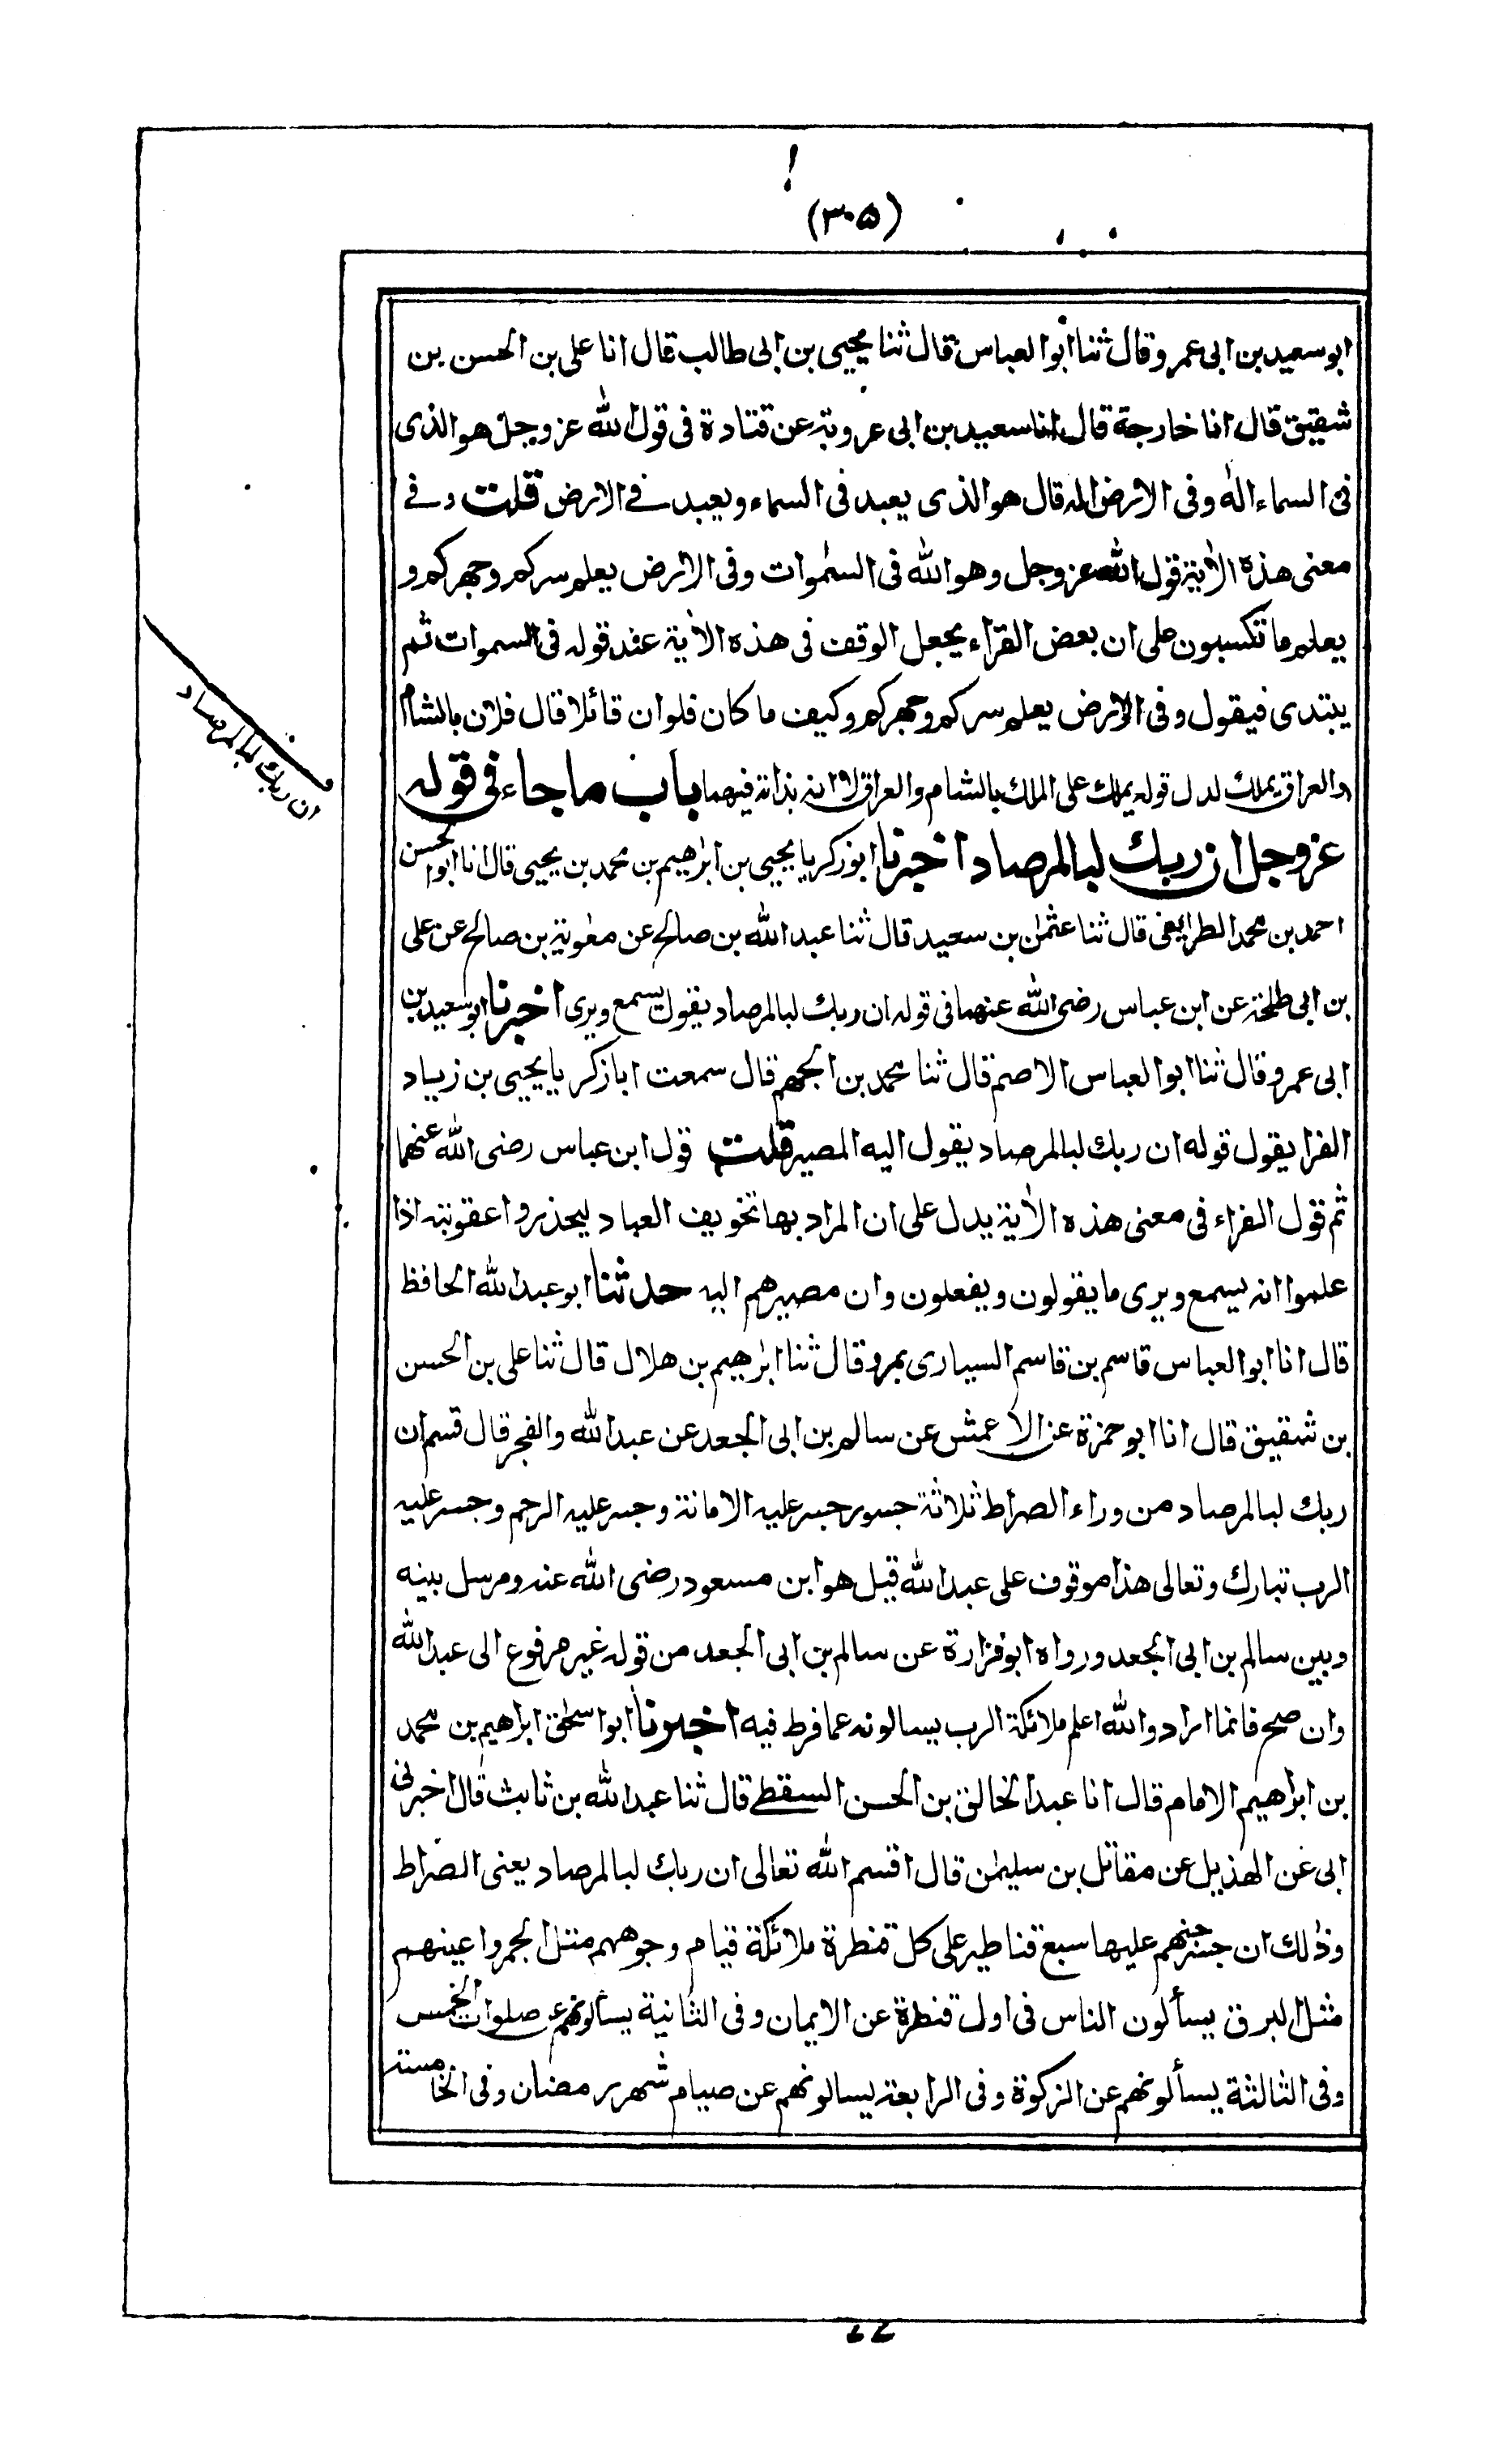 (٣٠٥)
ابو سعيد بن ابى عمرو قال ثنا ابو العباس قال ثنا يحيى بن ابى طالب قال انا على بن الحسن بن
شقيق قال انا خارجة قال انا سعيد بن ابى عروبة عن قتادة فى قول الله عز وجل هو الذى
فى السماء اله وفى الارض اله قال هو الذى يعبد فى السماء ويعبد فى الارض قلت وفى
معنى هذه الاٰية قول الله عز وجل وهو الله فى السمٰوات وفى الارض يعلم سركم وجهركم و
يعلم ما تكسبون على ان بعض القراء يجعل الوقف فى هذه الاٰية عند قوله فى السموات ثم
يبتدى فيقول وفى الارض يعلم سركم وجهركم وكيف ما كان فلو ان قائلا قال فلان بالشام
والعراق يملك لدل قوله يملك على الملك بالشام والعراق لا انه بذاته فيهما باب ما جاء فى قوله
عز وجل ان ربك لبالمرصاد اخبرنا ابو زكريا يحيى بن ابرٰهيم بن محمد بن يحيى قال انا ابو الحسن
احمد بن محمد الطرايفى قال ثنا عثمٰن بن سعيد قال ثنا عبد الله بن صالح عن معٰوية بن صالح عن على
بن ابى طلحة عن ابن عباس رضى الله عنهما فى قوله ان ربك لبالمرصاد يقول يسمع ويرى اخبرنا ابو سعيد بن
ابى عمرو قال ثنا ابو العباس الاصم قال ثنا محمد بن الجهم قال سمعت ابا زكريا يحيى بن زياد
الفرا يقول قوله ان ربك لبالمرصاد يقول اليه المصير قلت قول ابن عباس رضى الله عنهما
ثم قول الفراء فى معنى هذه الاٰية يدل على ان المراد بها تخويف العباد ليحذروا عقوبته اذا
علموا انه يسمع ويرى ما يقولون ويفعلون وان مصيرهم اليه حدثنا ابو عبد الله الحافظ
قال انا ابو العباس قاسم بن قاسم السيارى بمرو قال ثنا ابرٰهيم بن هلال قال ثنا على بن الحسن
بن شقيق قال انا ابو حمزة عن الاعمش عن سالم بن ابى الجعد عن عبد الله والفجر قال قسم ان
ربك لبالمرصاد من وراء الصراط ثلاثة جسور جسر عليه الامانة وجسر عليه الرحم وجسر عليه
الرب تبارك وتعالى هذا موقوف على عبد الله قيل هو ابن مسعود رضى الله عنه ومرسل بينه
وبين سالم بن ابى الجعد ورواه ابو فزارة عن سالم بن ابى الجعد من قوله غير مرفوع الى عبد الله
وان صح فانما اراد والله اعلم ملائكة الرب يسالونه عما فرط فيه اخبرنا ابو اسحٰق ابراهيم بن محمد
بن ابراهيم الامام قال انا عبد الخالق بن الحسن السقطى قال ثنا عبد الله بن ثابت قال اخبرنى
ابى عن الهذيل عن مقاتل بن سليمٰن قال اقسم الله تعالى ان ربك لبالمرصاد يعنى الصراط
وذٰلك ان جسر جهنم عليها سبع قناطير على كل قنطرة ملائكة قيام وجوههم مثل الجمر واعينهم
مثل البرق يسألون الناس فى اول قنطرة عن الايمان وفى الثانية يسألونهم عن صلوات الخمس
وفى الثالثة يسألونهم عن الزكوة وفى الرابعة يسالونهم عن صيام شهر رمضان وفى الخامسة
ان ربك لبالمرصاد